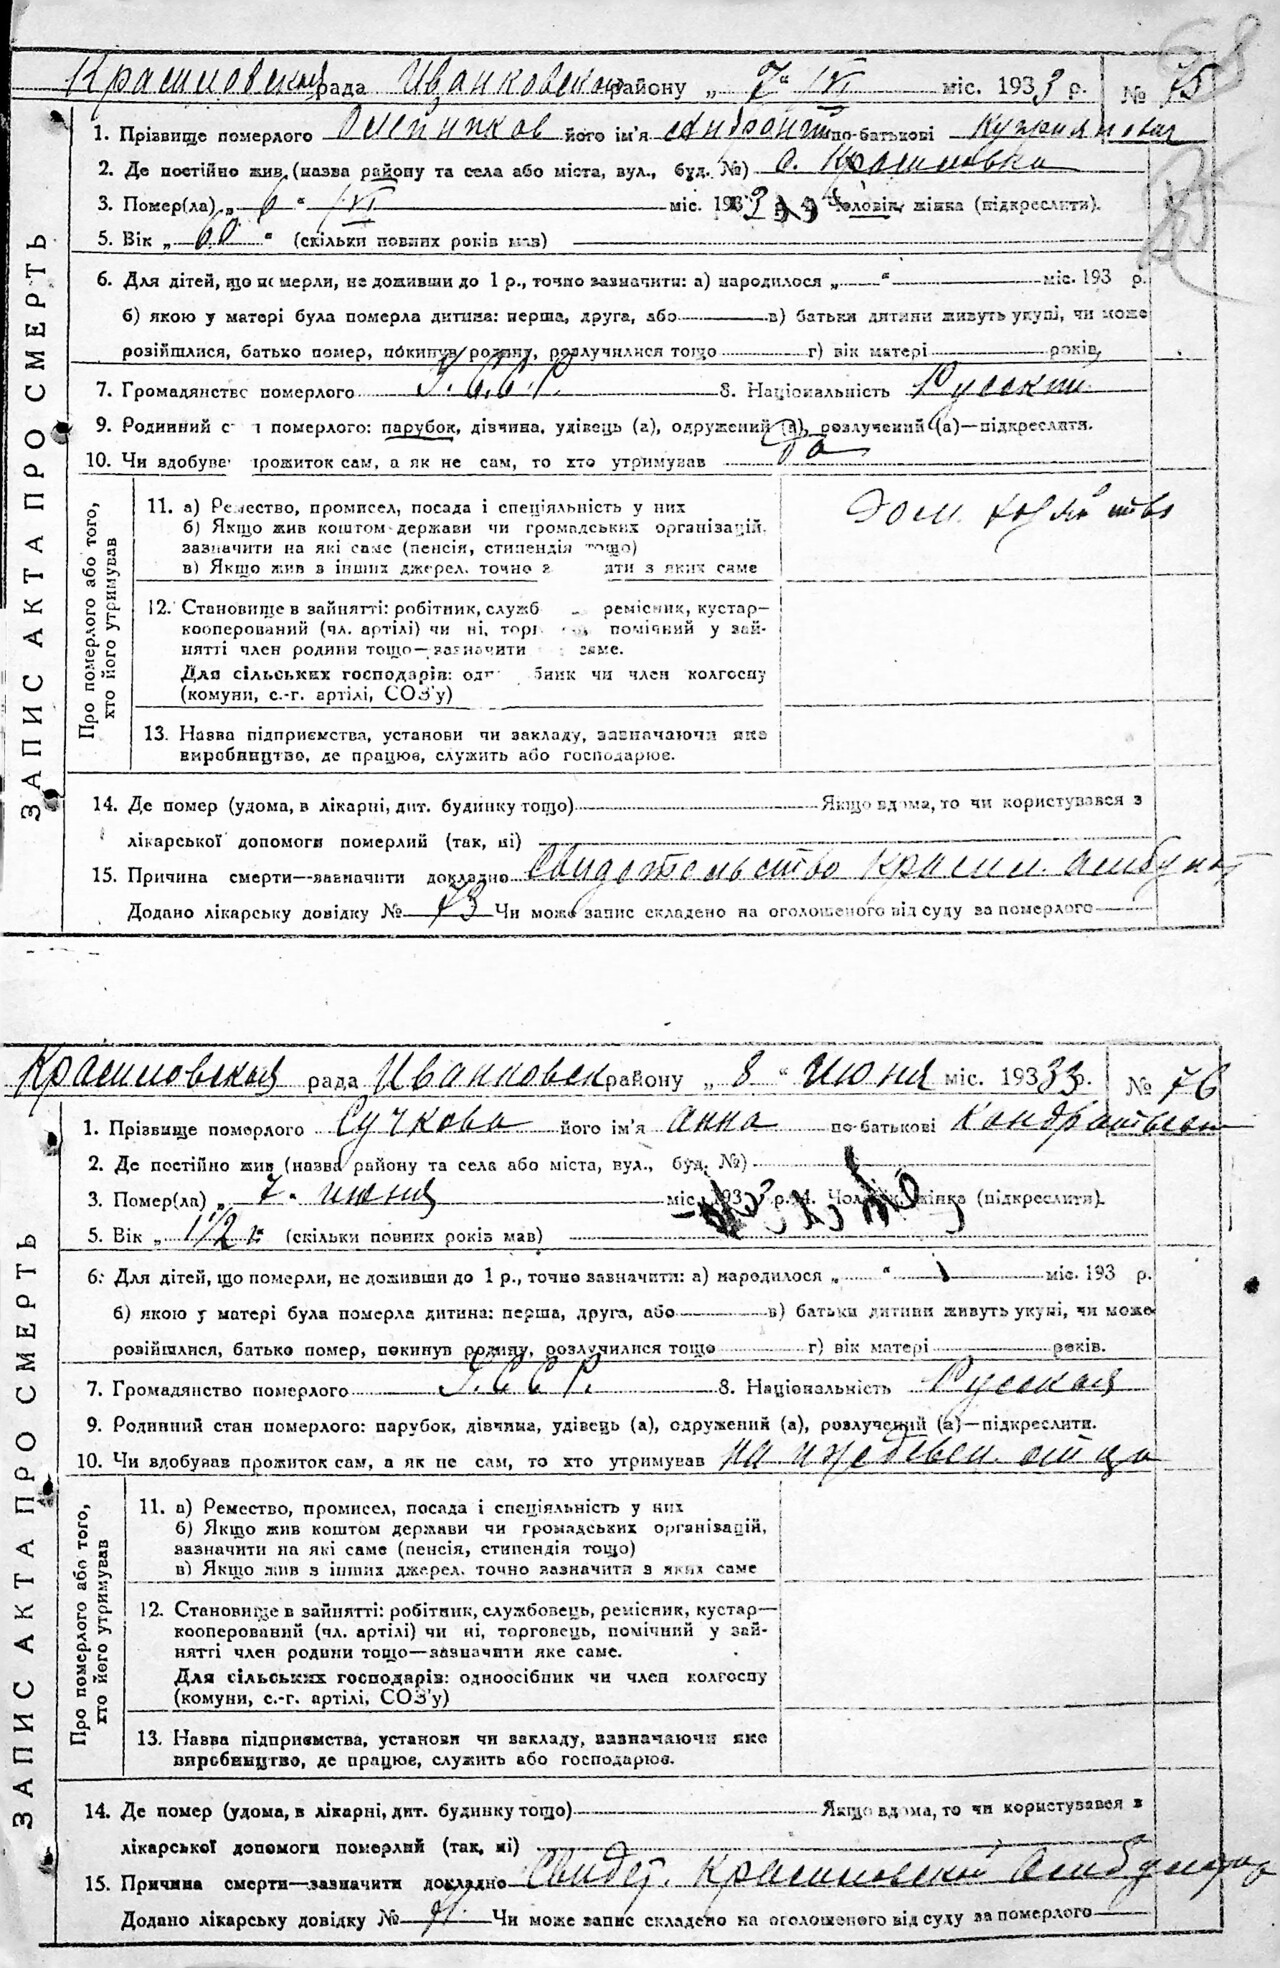 68
Красиловская рада Иванковского району „ 7 " VI міс. 1933 р. № 75
1. Прізвище померлого його ім'я по-батькові
2. Де постійно жив (назва району та села або міста, вул., буд. №) с. Красиловка
3. Помер(ла) „ 6 " VI міс. 1933 р. 4. Чоловік, жінка (підкреслити).
5. Вік „ 60 " (скільки повних років мав)
6. Для дітей, що померли, не доживши до 1 р., точно зазначити: а) народилося „ " міс. 193 р.
б) якою у матері була померла дитина: перша, друга, або в) батьки дитини живуть укупі, чи може
розійшлися, батько помер, покинув родину, розлучилися тощо г) вік матері років,
7. Громадянство померлого У.С.С.Р. 8. Національність Русский
9. Родинний с н померлого: парубок, дівчина, удівець (а), одружений (а), розлучений (а)—підкреслити.
10. Чи вдобува прожиток сам, а як не сам, то хто утримував да
ЗАПИС АКТА ПРО СМЕРТЬ
Про померлого або того, хто його утримував
11. а) Ремество, промисел, посада і спеціяльність у них Дом. хозяйство
б) Якщо жив коштом держави чи громадських організацій,
зазначити на які саме (пенсія, стипендія тощо)
в) Якщо жив з інших джерел, точно з яти з яких саме
12. Становище в зайнятті: робітник, служб ремісник, кустар—
кооперований (чл. артілі) чи ні, торг помічний у зай-
нятті член родини тощо—зазначити саме.
Для сільських господарів: од бник чи член колгоспу
(комуни, с.-г. артілі, СОЗ'у)
13. Назва підприємства, установи чи закладу, зазначаючи яке
виробництво, де працює, служить або господарює.
14. Де помер (удома, в лікарні, дит. будинку тощо) Якщо вдома, то чи користувався з
лікарської допомоги померлий (так, ні)
15. Причина смерти—зазначити докладно Свидетельство Красил. Амбулат
Додано лікарську довідку № 73 Чи може запис складено на оголошеного від суду за померлого
Красиловская рада Иванковск району „ 8 " июня міс. 1933 р. № 76
1. Прізвище померлого Сучкова його ім'я Анна по-батькові Кондратьевн
2. Де постійно жив (назва району та села або міста, вул., буд. №)
3. Помер(ла) „ 7. июня міс. 1933 р. 4. Чоловік, жінка (підкреслити).
5. Вік „ 1/2 г. (скільки повних років мав)
6. Для дітей, що померли, не доживши до 1 р., точно зазначити: а) народилося „ " міс. 193 р.
б) якою у матері була померла дитина: перша, друга, або в) батьки дитини живуть укупі, чи може
розійшлися, батько помер, покинув родину, розлучилися тощо г) вік матері років.
7. Громадянство померлого У.С.С.Р. 8. Національність Русская
9. Родинний стан померлого: парубок, дівчина, удівець (а), одружений (а), розлучений (а)—підкреслити.
10. Чи вдобував прожиток сам, а як не сам, то хто утримував на иждевен. отца
ЗАПИС АКТА ПРО СМЕРТЬ
Про померлого або того, хто його утримував
11. а) Ремество, промисел, посада і спеціяльність у них
б) Якщо жив коштом держави чи громадських організацій,
зазначити на які саме (пенсія, стипендія тощо)
в) Якщо жив з інших джерел, точно зазначити з яких саме
12. Становище в зайнятті: робітник, службовець, ремісник, кустар—
кооперований (чл. артілі) чи ні, торговець, помічний у зай-
нятті член родини тощо—зазначити яке саме.
Для сільських господарів: одноосібник чи член колгоспу
(комуни, с.-г. артілі, СОЗ'у)
13. Назва підприємства, установи чи закладу, зазначаючи яке
виробництво, де працює, служить або господарює.
14. Де помер (удома, в лікарні, дит. будинку тощо) Якщо вдома, то чи користувався з
лікарської допомоги померлий (так, ні)
15. Причина смерти—зазначити докладно Свидет. Красиловской Амбулатор
Додано лікарську довідку № Чи може запис складено на оголошеного від суду за померлого